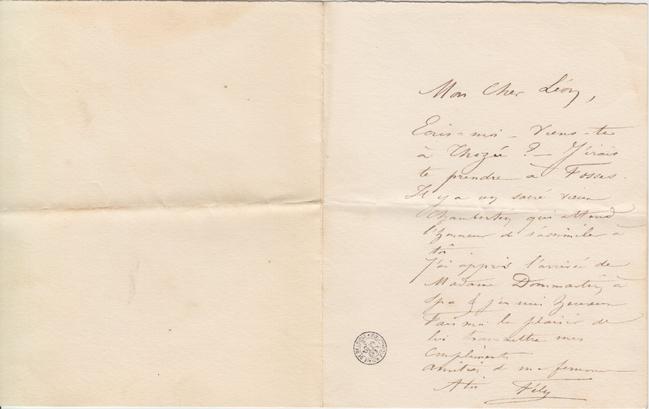 Mon Cher Léon,
Ecris-moi - Viens-tu
à Thozée ? - J'irais
te prendre à Fosses.
Il y a un sacré vieux
Chambertin qui attend
l'honneur de s'assimiler à
toi.
J'ai appris l'arrivée de
Madame Dommartin à
Spa & j'en suis heureux
Fais moi le plaisir de
lui transmettre mes
compliments
amitiés de ma femme
A toi Fély